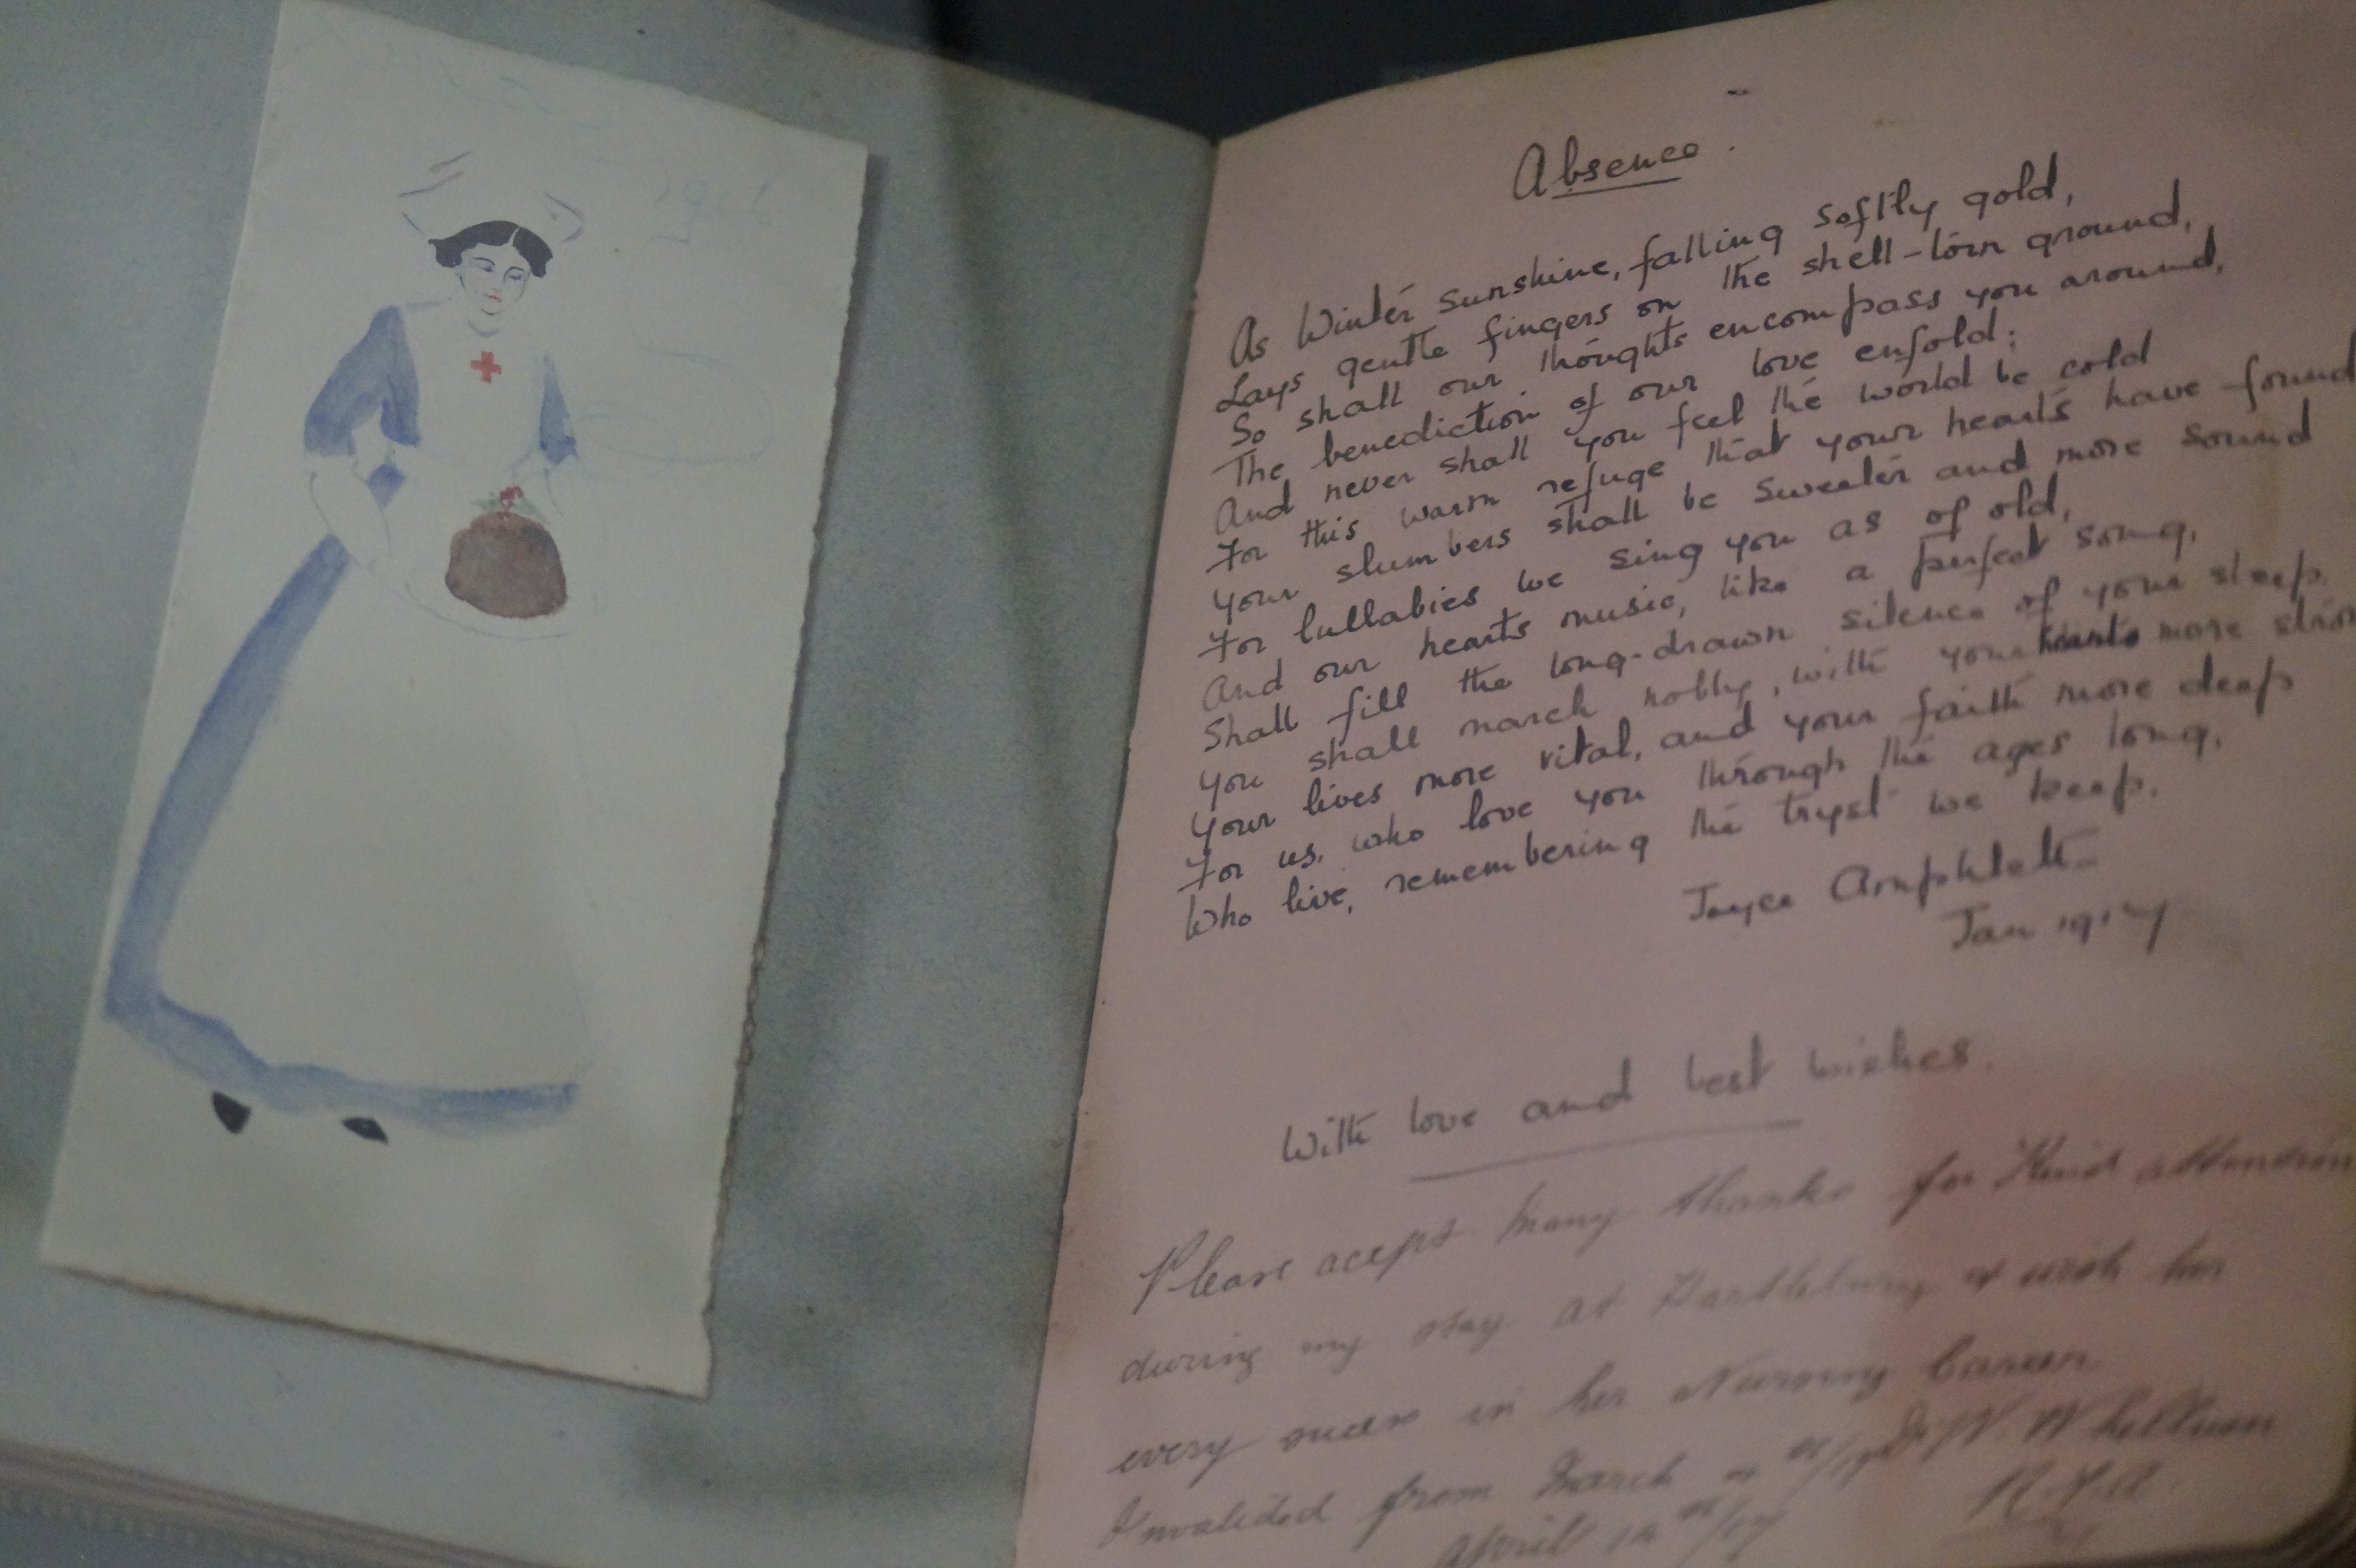 Absence.
As Winter sunshine, falling softly gold,
Lays gentle fingers on the shell-torn ground,
So shall our thoughts encompass you around,
The benediction of our love enfold:
And never shall you feel the world be cold
For this warm refuge that your hearts have found
Your slumbers shall be sweeter and more sound
For lullabies we sing you as of old,
And our hearts music, like a perfect song,
Shall fill the long-drawn silence of your sleep.
You shall march nobly, with your hearts more stron
Your lives more vital, and your faith more deep
For us, who love you through the ages long,
Who live, remembering the tryst we keep.
Joyce Amphlett
Jan 1917
With love and best wishes.
Please accept many thanks for kind attention
during my stay at Hartlebury & wish her
every success in her Nursing Career
Invalided from March
April 14th/17
R.F.A.